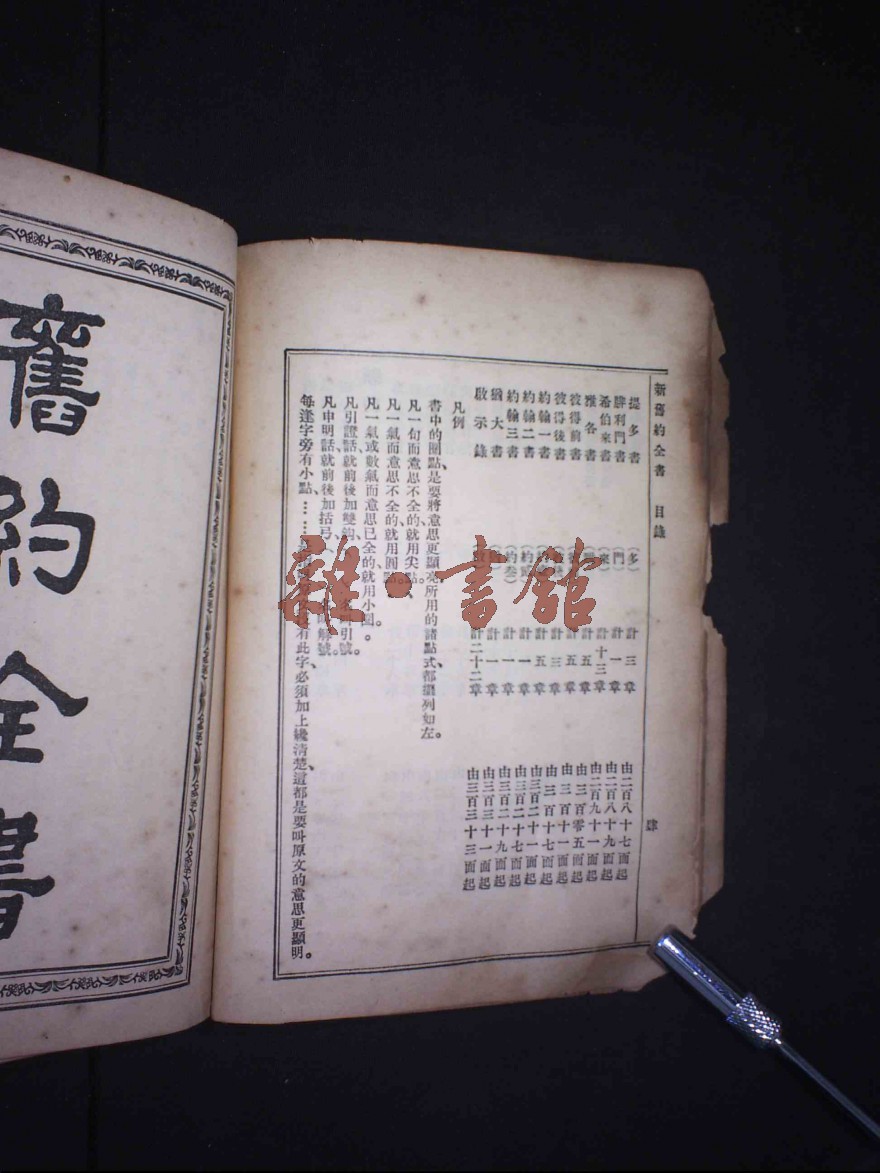 新舊約全書 目錄 肆
提多書 (多) 計三章 由二百八十七面起
腓利門書 (門) 計一章 由二百八十九面起
希伯來書 (來) 計十三章 由二百九十一面起
雅各書 計五章 由三百零五面起
彼得前書 計五章 由三百十一面起
彼得後書 計三章 由三百十七面起
約翰一書 計五章 由三百二十一面起
約翰二書 (約貳) 計一章 由三百二十七面起
約翰三書 (約叁) 計一章 由三百二十九面起
猶大書 計一章 由三百三十一面起
啟示錄 計二十二章 由三百三十三面起
凡例
書中的圈點、是要將意思更顯亮、所用的諸點式、都擺列如左。
凡一句而意思不全的、就用尖點、
凡一氣而意思不全的、就用圓點.
凡一氣或數氣而意思已全的、就用小圈。
凡引證話、就前後加雙鉤、引號。
凡申明話、就前後加括弓、( 解號。
每逢字旁有小點、…… 有此字、必須加上纔清楚、這都是要叫原文的意思更顯明。
舊約全書
雜·書館